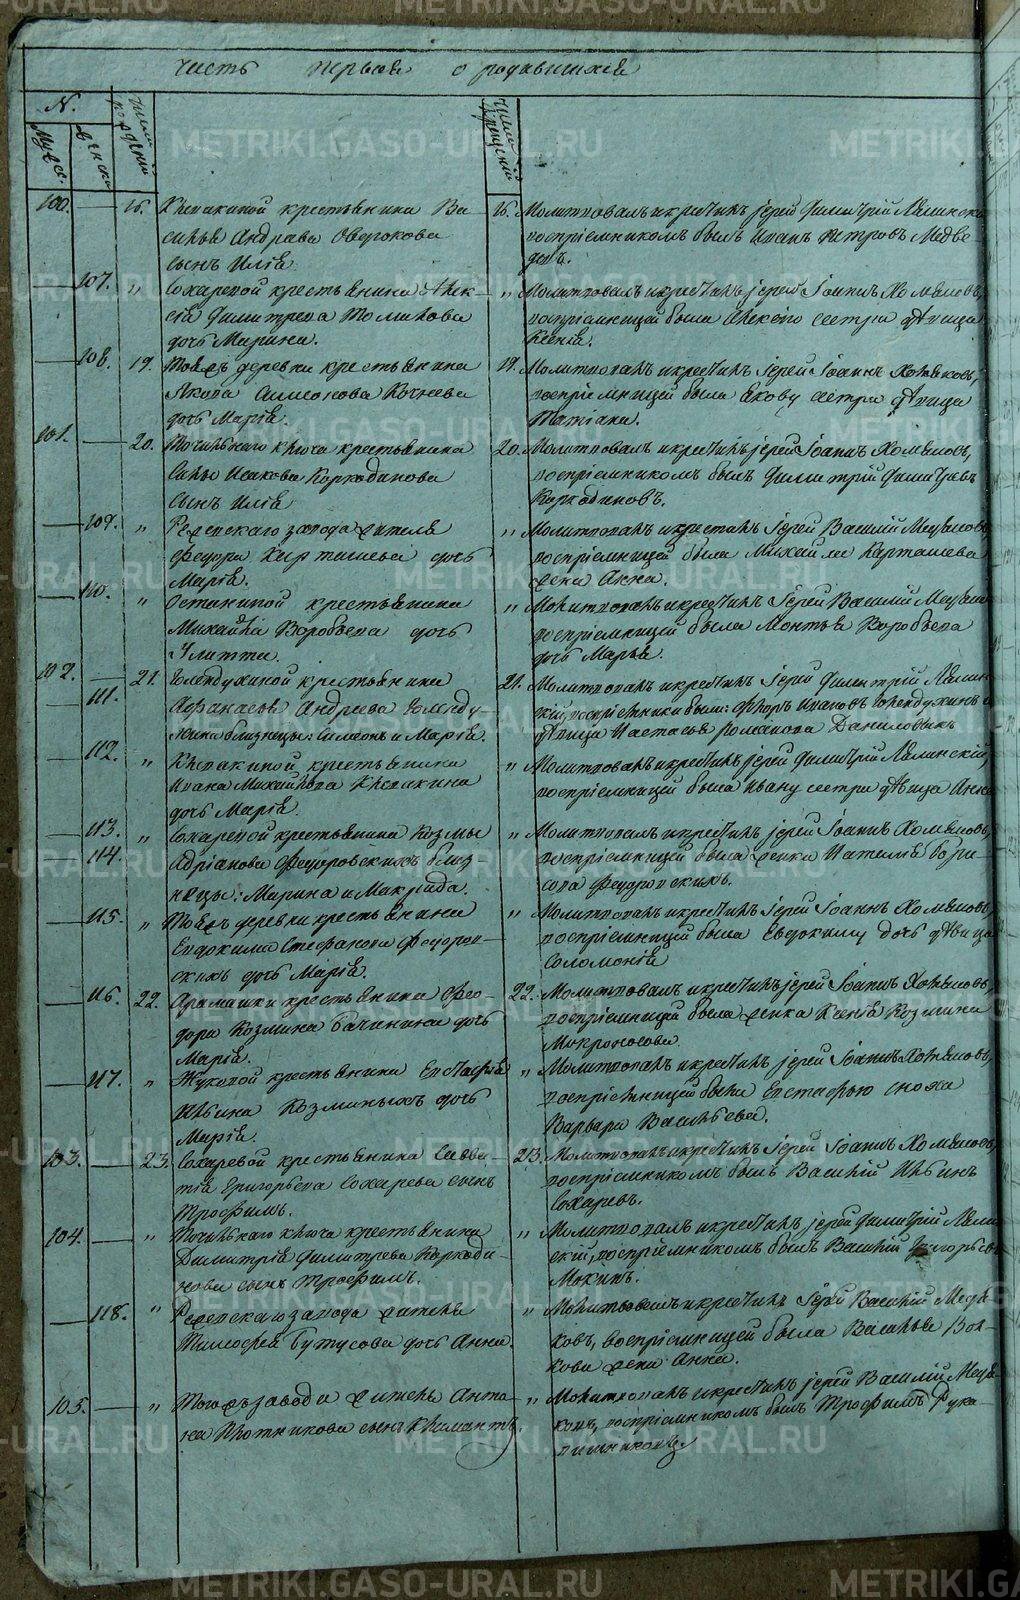 часть первая о родившихся
N.
Мужес.
Женска
числа рождений
числа крещений
100. — 16. Клевакиной крестьянина Ва
силья Андреева Оверюкова
сынъ Илія
16. Молитвовалъ и крестилъ іерей Димитрій Ляпински
воспріемникомъ былъ Иванъ Петровъ Медве
девъ.
— 107. „ Сохаревой крестьянина Алек-
сія Димитрева Томилова
дочь Марина.
„ Молитвовалъ и крестилъ іерей Іоаннъ Хомяковъ,
воспріемницей была Алексію сестра дѣвица
Ксенія.
— 108. 19. Тоежъ деревни крестьянина
Якова Симеонова Кочнева
дочь Марія.
19. Молитвовалъ и крестилъ іерей Іоаннъ Хомяковъ,
воспріемницей была Якову сестра дѣвица
Татіана.
101. — 20. Точильнаго ключа крестьянина
Исакова Коркодинова
сынъ Илія
20. Молитвовалъ и крестилъ іерей Іоаннъ Хомяковъ,
воспріемникомъ былъ Димитрій
Коркодиновъ.
— 109. „ Режевскаго завода жителя
Федора Карташева дочь
Марія.
„ Молитвовалъ и крестилъ іерей Василій
воспріемницей была Михайла Карташева
жена Анна.
— 110. „ Останиной крестьянина
Михайла Воробьева дочь
Улитта.
„ Молитвовалъ и крестилъ іерей Василій
воспріемницей была Воробьева
дочь Марья.
102. — 21. Голендухиной крестьянина
— 111. Афанасья Андреева Голенду
хина близнецы: Симеонъ и Марія.
21. Молитвовалъ и крестилъ іерей Димитрій Ляпин
скій, воспріемники были: Иванов Голендухинъ и
дѣвица Настасья Романова
— 112. „ Клевакиной крестьянина
Ивана Михайлова Клевакина
дочь Марія.
„ Молитвовалъ и крестилъ іерей Димитрій Ляпинскій,
воспріемницей была Ивану сестра дѣвица Анна
— 113. „ Сохаревой крестьянина Козмы
— 114. Адріанова Федоровскихъ близ
нецы: Марина и Макрида.
„ Молитвовалъ и крестилъ іерей Іоаннъ Хомяковъ,
воспріемницей была женка Наталія Бори
сова Федоровскихъ.
— 115. „ Тоежъ деревни крестьянина
Евдокима Стефанова Федоров
скихъ дочь Марія.
„ Молитвовалъ и крестилъ іерей Іоаннъ Хомяковъ,
воспріемницей была Евдокиму дочь дѣвица
Соломонія
— 116. 22. Арамашки крестьянина Фео
дора Козмина Бачинина дочь
Марія.
22. Молитвовалъ и крестилъ іерей Іоаннъ Хомяковъ,
воспріемницей была женка Ксенія Козмина
Мокроносова.
— 117. „ Жуковой крестьянина Евстафія
Ильина Козминыхъ дочь
Марія.
„ Молитвовалъ и крестилъ іерей Іоаннъ Хомяковъ,
воспріемницей была Евстафью сноха
Варвара Васильева.
103. — 23. Сохаревой крестьянина Савва
тія Григорьева Сохарева сынъ
Трофимъ.
23. Молитвовалъ и крестилъ іерей Іоаннъ Хомяковъ,
воспріемникомъ былъ Василій Ильинъ
Сохаревъ.
104. — „ Точильнаго ключа крестьянина
Димитрія Димитрева Коркоди
нова сынъ Трофимъ.
„ Молитвовалъ и крестилъ іерей Димитрій Ляпин
скій, воспріемникомъ былъ Василій Григорьев
Мокинъ.
— 118. „ Режевскаго завода жителя
Тимофея Бутусова дочь Анна.
„ Молитвовалъ и крестилъ іерей Василій
ковъ, воспріемницей была Василья Вол-
кова жена Анна.
105. — „ Тогожъ завода жителя Анто-
на Плотникова сынъ Климентъ.
„ Молитвовалъ и крестилъ іерей Василій
ковъ, воспріемникомъ былъ Трофимъ Рука-
вишниковъ.
METRIKI.GASO-URAL.RU